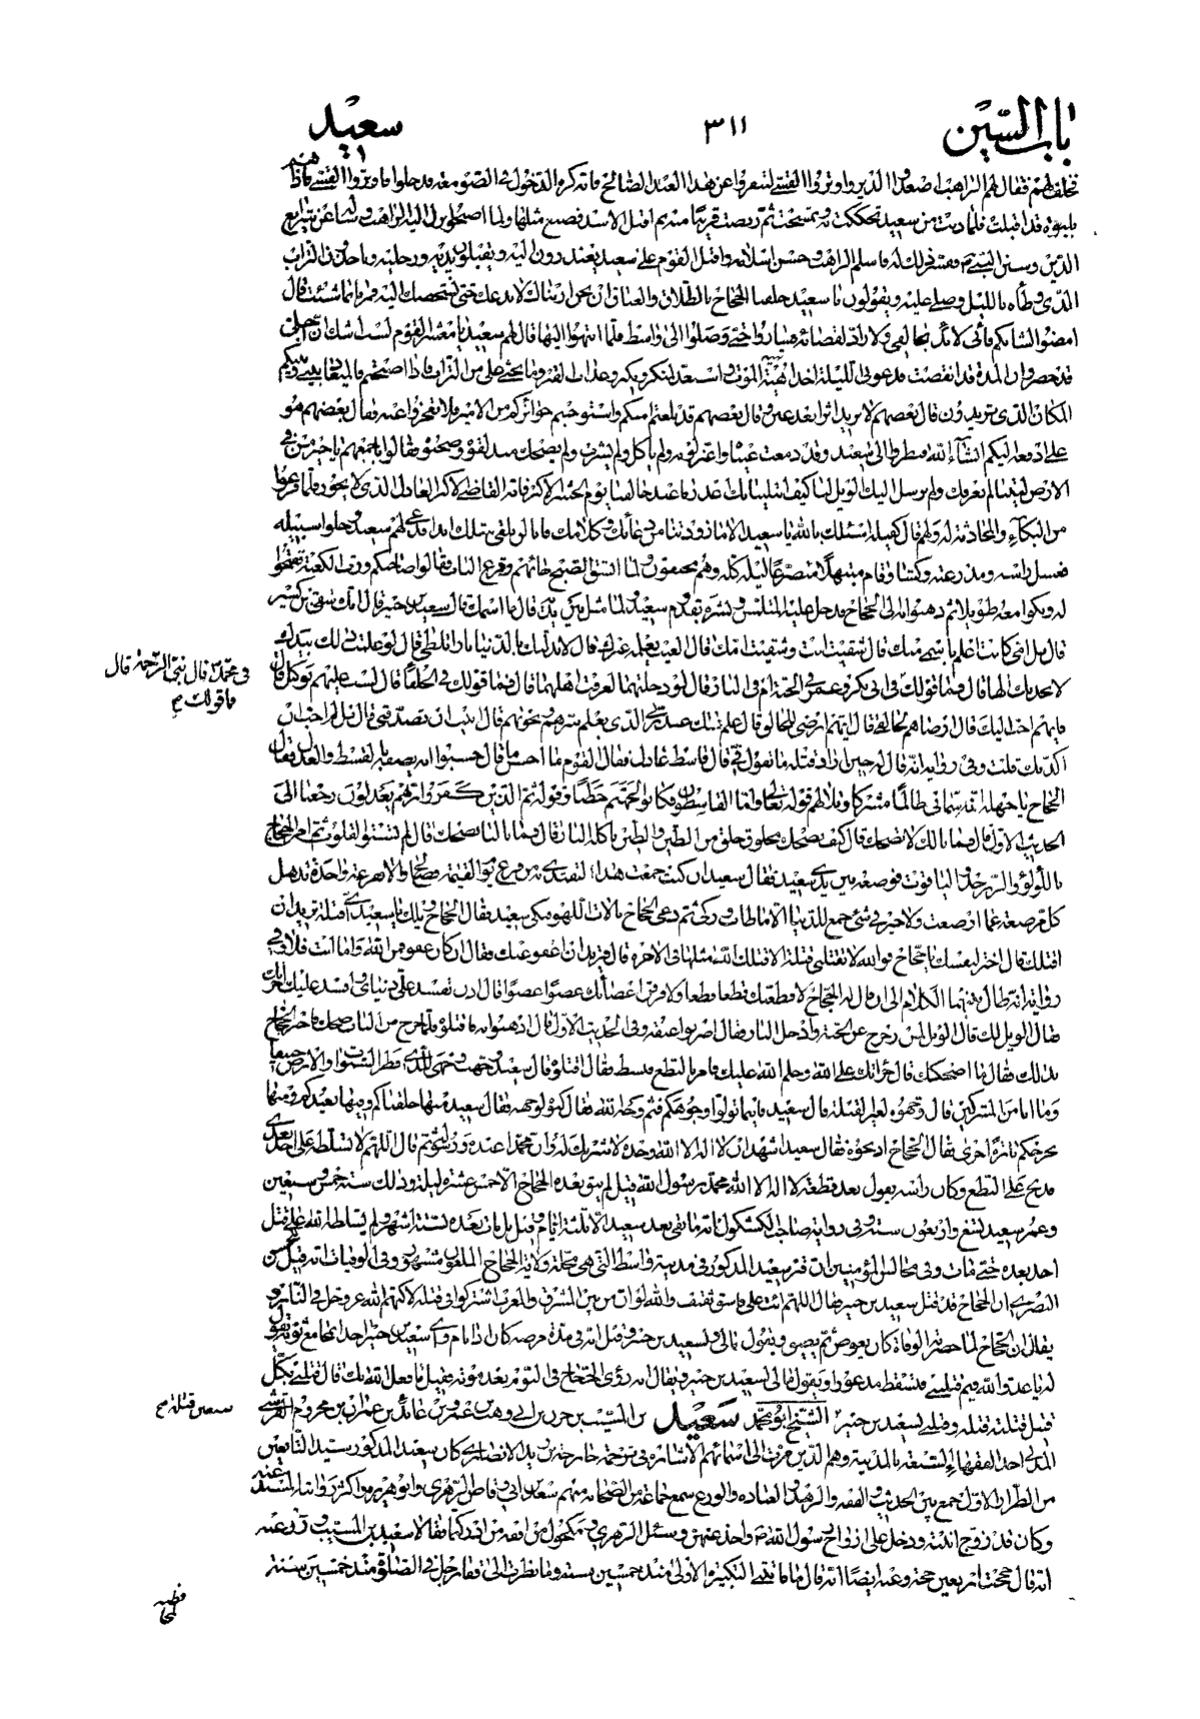 باب السّين ٣١١ سعيد
فحلف لهم فقال لهم الراهب اصعدوا الدير واوتروا القسى لتنفروا عن هذا العبد الصالح فانه كره الدخول فى الصومعة فدخلوا واوتروا القسى فاذا هم
بلبوة قد اقبلت فلما دنت من سعيد تحككت به وتمسحت ثم ربضت قريبا منه ثم اقبل الاسد فصنع مثلها ولما اصبحوا نزل اليه الراهب وسأله عن شرايع
الدين وسنن النبى ففسر ذلك له فاسلم الراهب وحسن اسلامه واقبل القوم على سعيد يعتذرون اليه ويقبلون يديه ورجليه وياخذون التراب
الذى وطأه بالليل وصلى عليه ويقولون يا سعيد حلفنا الحجاج بالطلاق والعتاق ان نحن رايناك لا ندعك حتى نشخصك اليه فمرنا بما شئت قال
امضوا لشانكم فانى لائذ بخالقى ولا راد لقضائه فساروا حتى وصلوا الى واسط فلما انتهوا اليها قال لهم سعيد يا معشر القوم لست اشك ان اجلى
قد حضر وان المدة قد انقضت فدعونى الليلة اخذ اهبة الموت واستعد لمنكر ونكير وعذاب القبر وما يحثى على من التراب فاذا اصبحتم فالميعاد بينى وبينكم
المكان الذى تريدون قال بعضهم لا نريد اثرا بعد عين وقال بعضهم قد بلغتم امنكم واستوجبتم جوائزكم من الامير فلا تعجزوا عنه فقال بعضهم هو
على ادفعه اليكم انشاء الله فنظروا الى سعيد وقد دمعت عيناه واغبر لونه ولم ياكل ولم يشرب ولم يضحك منذ لقوه وصحبوه فقالوا باجمعهم يا خير من فى
الارض ليتنا لم نعرفك ولم نرسل اليك الويل لنا كيف ابتلينا بك عذرنا عند خالقنا يوم الحشر الاكبر فانه القاضى الاكبر العادل الذى لا يجور فلما فرغوا
من البكاء والمحادثة له ولهم قال كفيله اسئلك بالله يا سعيد الا ما زودتنا من دعائك وكلامك فانا لن نلقى مثلك ابدا فدعى لهم سعيد وخلوا سبيله
فغسل راسه ومدرعته وكساه وقام مبتهلا متضرعا ليله كله وهم مختفون ولما انشق الصبح جائهم وقرع الباب فقالوا صاحبكم ورب الكعبة فنزلوا
له وبكوا معه طويلا ثم ذهبوا به الى الحجاج فدخل عليه المتلمس وبشره بقدوم سعيد ولما مثل بين يديه قال ما اسمك قال سعيد بن جبير قال انك شقى بن كسير
قال بل امى كانت اعلم باسمى منك قال شقيت انت وشقيت امك قال الغيب يعلمه غيرك قال لابدلنك بالدنيا نارا تلظى قال لو علمت ذلك بيدك
لاتخذتك الها قال فما قولك فى ابى بكر وعمر فى الجنة ام فى النار قال لو دخلتهما لعرفت اهلهما قال فما قولك فى الخلفاء قال لست عليهم بوكيل قال
فى محمد قال نبى الرحمة قال
فما قولك
فايهم احب اليك قال ارضاهم لخالقى قال فايهم ارضى للخالق قال علم ذلك عند الذى يعلم سرهم ونجواهم قال ابيت ان تصدقنى قال بل لم احب ان
اكذبك قلت وفى رواية انه قال له حين اراد قتله ما تقول فى قال قاسط عادل فقال القوم ما احسن ما قال حسبوا انه يصفه بالقسط والعدل فقال
الحجاج يا جهلة انه سمانى ظالما مشركا وتلا لهم قوله تعالى واما القاسطون فكانوا لجهنم حطبا وقوله ثم الذين كفروا بربهم يعدلون رجعنا الى
الحديث الاول قال فما بالك لا تضحك قال كيف يضحك مخلوق خلق من الطين والطين تاكله النار قال فما بالنا نضحك قال لم تستو القلوب ثم امر الحجاج
باللؤلؤ والزبرجد واليا قوت فوضعه بين يدى سعيد فقال سعيد ان كنت جمعت هذا لتفتدى به من فزع يوم القيمة فصالح والا ففزعة واحدة تذهل
كل مرضعة عما ارضعت ولا خير فى شئ جمع للدنيا الا ما طاب وزكى ثم دعى الحجاج بالات اللهو فبكى سعيد فقال الحجاج ويلك يا سعيد اى قتلة تريد ان
اقتلك قال اختر لنفسك يا حجاج فوالله لا تقتلنى قتلة الا قتلك الله مثلها فى الاخرة قال فتريد ان اعفو عنك فقال ان كان عفو فمن الله واما انت فلا وفى
رواية انه طال بينهما الكلام الى ان قال له الحجاج لاقطعنك قطعا قطعا ولافرقن اعضائك عضوا عضوا قال اذن تفسد على دنياى وافسد عليك اخرتك
فقال الويل لك قال الويل لمن زحزح عن الجنة وادخل النار فقال اضربوا عنقه وفى الحديث الاول قال اذهبوا به فاقتلوه فلما خرج من الباب ضحك فاخبر الحجاج
بذلك فقال ما اضحكك قال جرأتك على الله وحلم الله عليك فامر بالنطع فبسط فقال اقتلوه قال سعيد وجهت وجهى للذى فطر السموات والارض حنيفا
وما انا من المشركين قال وجهوه لغير القبلة قال سعيد فاينما تولوا وجوهكم فثم وجه الله فقال كبوه لوجهه فقال سعيد منها خلقناكم وفيها نعيدكم ومنها
نخرجكم تارة اخرى فقال الحجاج اذبحوه فقال سعيد اشهد ان لا اله الا الله وحده لا شريك له وان محمدا عبده ورسوله ثم قال اللهم لا تسلطه على احد بعدى
فذبح على النطع وكان راسه يقول بعد قطعه لا اله الا الله محمد رسول الله قيل لم يبق بعده الحجاج الا خمس عشرة ليلة وذلك سنة خمس وتسعين
وعمر سعيد تسع واربعون سنة وفى رواية صاحب الكشكول انه ما بقى بعد سعيد الا ثلثة ايام وقيل بل مات بعده بستة اشهر ولم يسلطه الله على قتل
احد بعده حتى مات وفى مجالس المؤمنين ان قبر سعيد المذكور فى مدينة واسط التى هى محل ولاية الحجاج الملعون مشهور وفى الوفيات انه قيل للحسن
البصرى ان الحجاج قد قتل سعيد بن جبير فقال اللهم ائت على فاسق ثقيف والله لو ان من بين المشرق والمغرب اشتركوا فى قتله لاكبهم الله عز وجل فى النار و
يقال ان الحجاج لما حضرته الوفاة كان يغوص ثم يفيق ويقول مالى ولسعيد بن جبير وقيل انه فى مدة مرضه كان اذا نام راى سعيد بن جبير اخذا بمجامع ثوبه يقول
له يا عدو الله فيم قتلتنى فيستيقظ مذعورا ويقول مالى لسعيد بن جبير ويقال انه رؤى الحجاج فى النوم بعد موته فقيل ما فعل الله بك قال قتلنى بكل
قتيل قتلته قتلة وقتلنى لسعيد بن جبير سبعين قتلة الشيخ ابو محمد سعيد بن المسيب بن حزن بن ابى وهب بن عمرو بن عائذ بن عمران بن مخزوم القرشى
سبعين قتلة صح
المدنى احد الفقهاء السبعة بالمدينة وهم الذين مرت الى اسمائهم الاشارة فى ترجمة خارجة بن زيد الانصارى كان سعيد المذكور سيد التابعين
من الطراز الاول جمع بين الحديث والفقه والزهد والعبادة والورع سمع جماعة من الصحابة منهم سعد بن ابى وقاص الزهرى وابو هريرة واكثر رواياته المسند عنه
وكان قد زوج ابنته ودخل على ازواج رسول الله واخذ عنهن وسئل الزهرى ومكحول من افقه من ادركتما فقالا سعيد بن المسيب وروى عنه
انه قال حججت اربعين حجة وعنه ايضا انه قال ما فاتتنى التكبيرة الاولى منذ خمسين سنة وما نظرت الى قفا رجل فى الصلوة منذ خمسين سنة